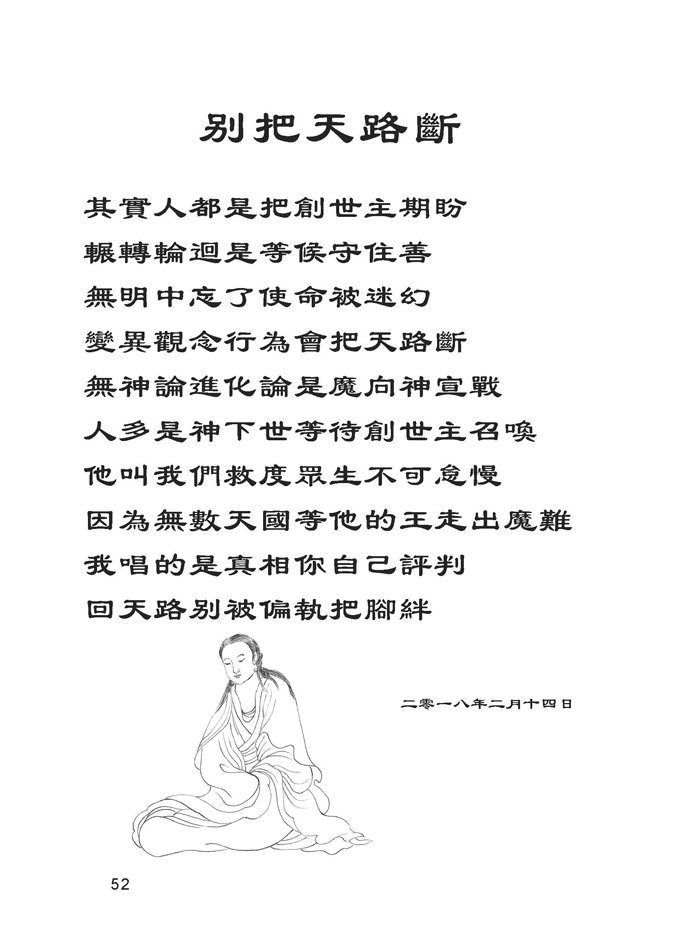 別把天路斷
其實人都是把創世主期盼
輾轉輪迴是等候守住善
無明中忘了使命被迷幻
變異觀念行為會把天路斷
無神論進化論是魔向神宣戰
人多是神下世等待創世主召喚
他叫我們救度眾生不可怠慢
因為無數天國等他的王走出魔難
我唱的是真相你自己評判
回天路別被偏執把腳絆
二零一八年二月十四日
52